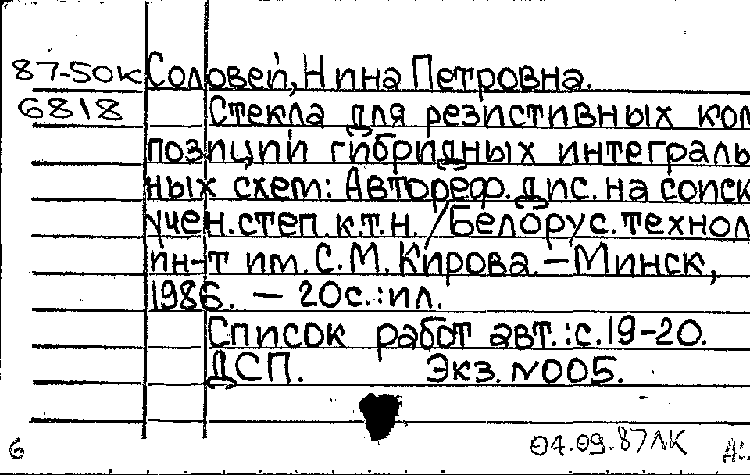 87-50к Соловей, Нина Петровна.
6818 Стекла для резистивных ком
позиций гибридных интеграль
ных схем: Автореф. дис. на соиск
учен. степ. к.т.н. /Белорус. технол
ин-т им. С. М. Кирова. — Минск,
1986. — 20с.: ил.
Список работ авт.: с. 19-20.
ДСП. Экз. N005.
6 04.09.87ЛК